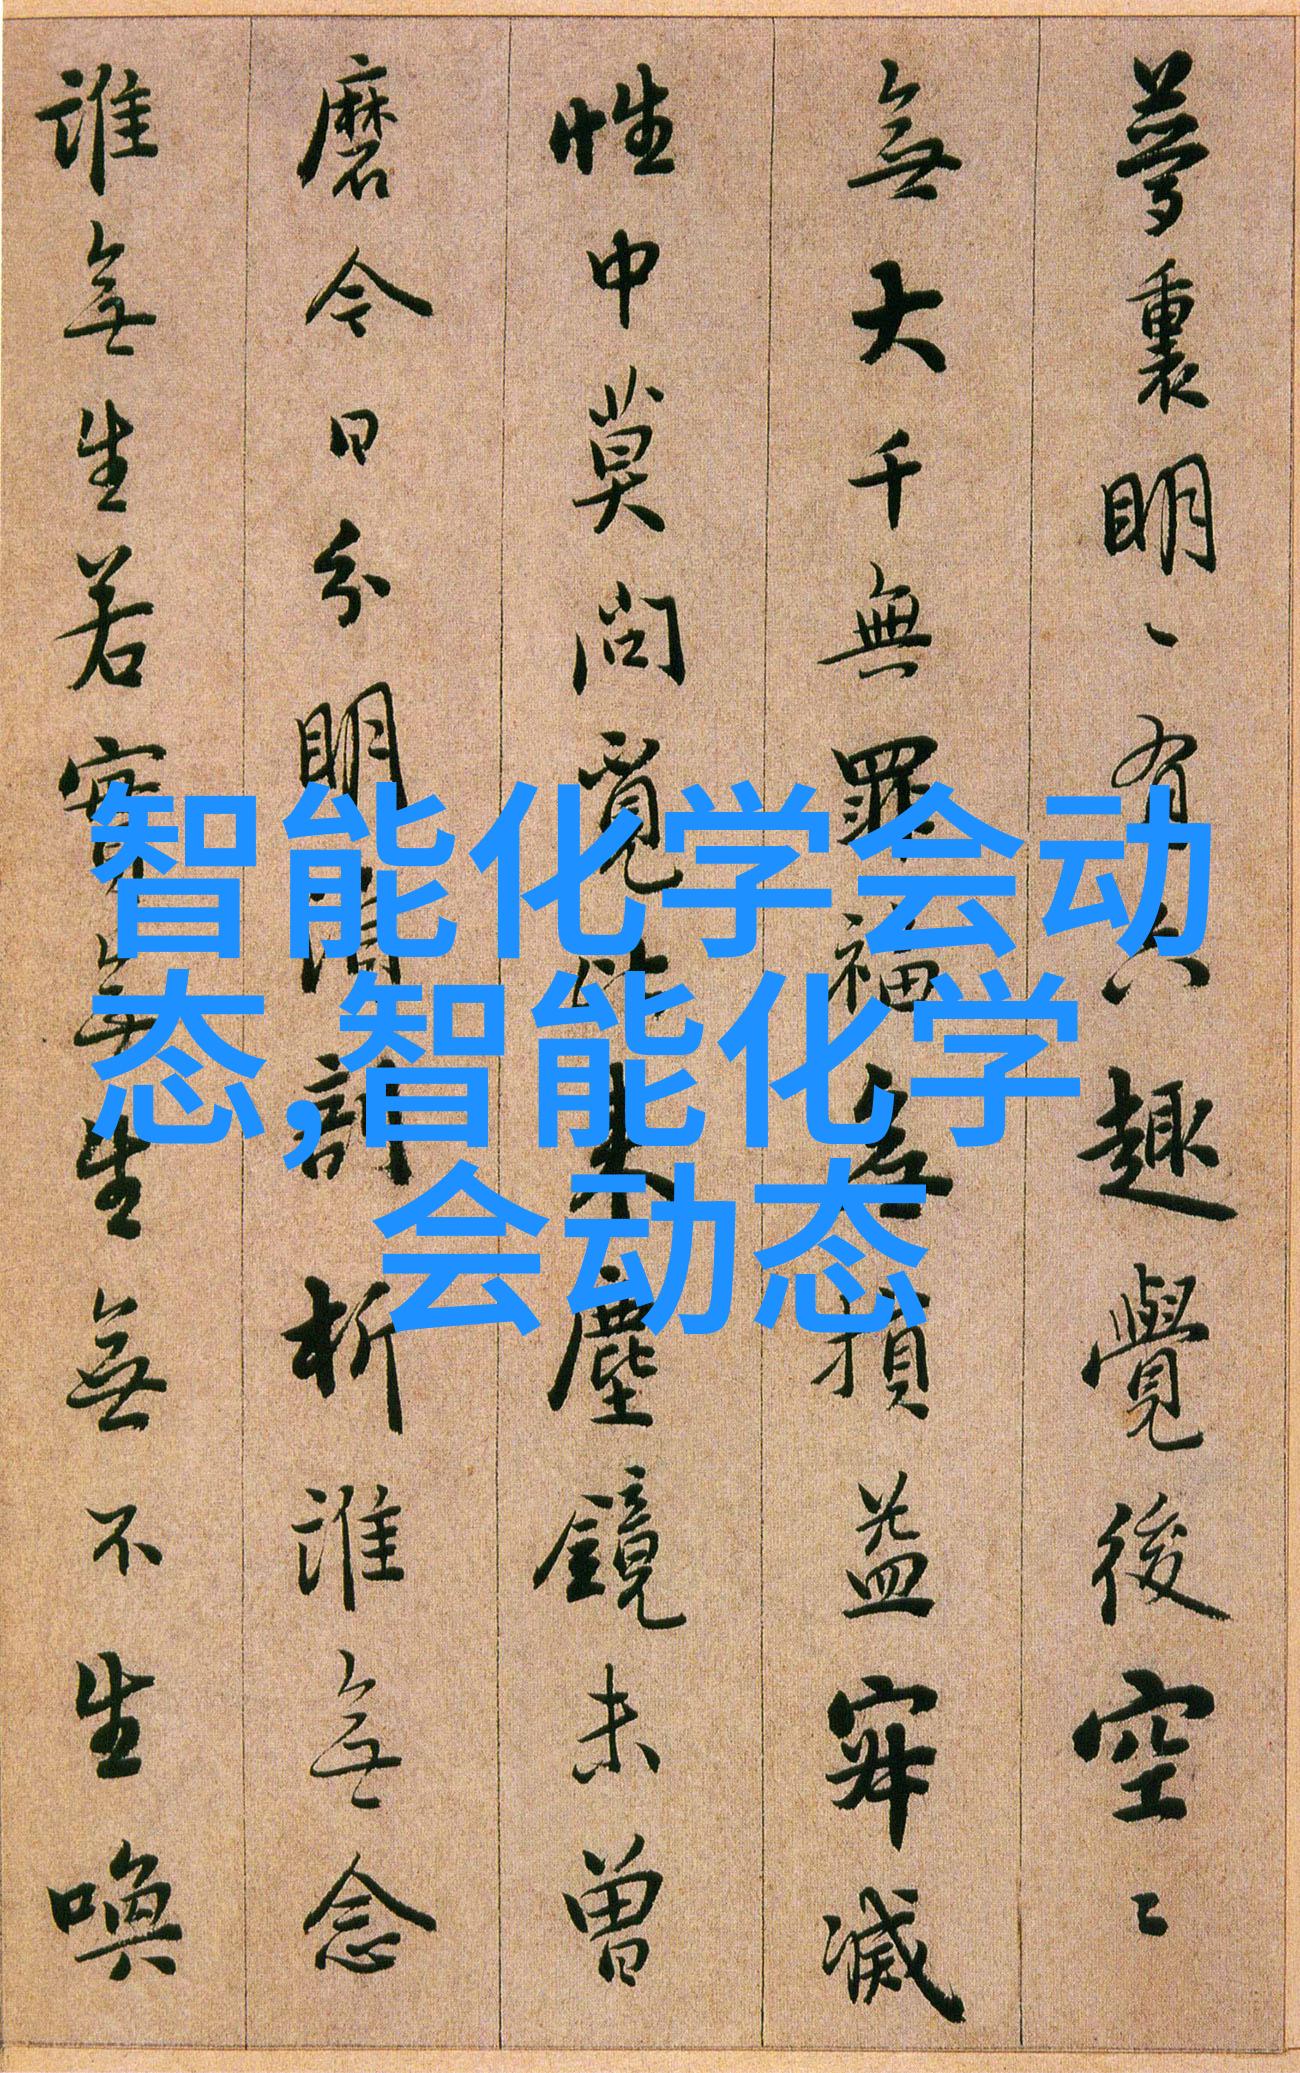 夢裏明〻有六趣覺後空〻
無大千無罪福無損益寂滅
性中莫問覓比來塵鏡未曾
磨今日分明須剖析誰無念
誰無生若實無生無不生喚
智能化学会动
态,智能化学
会动态